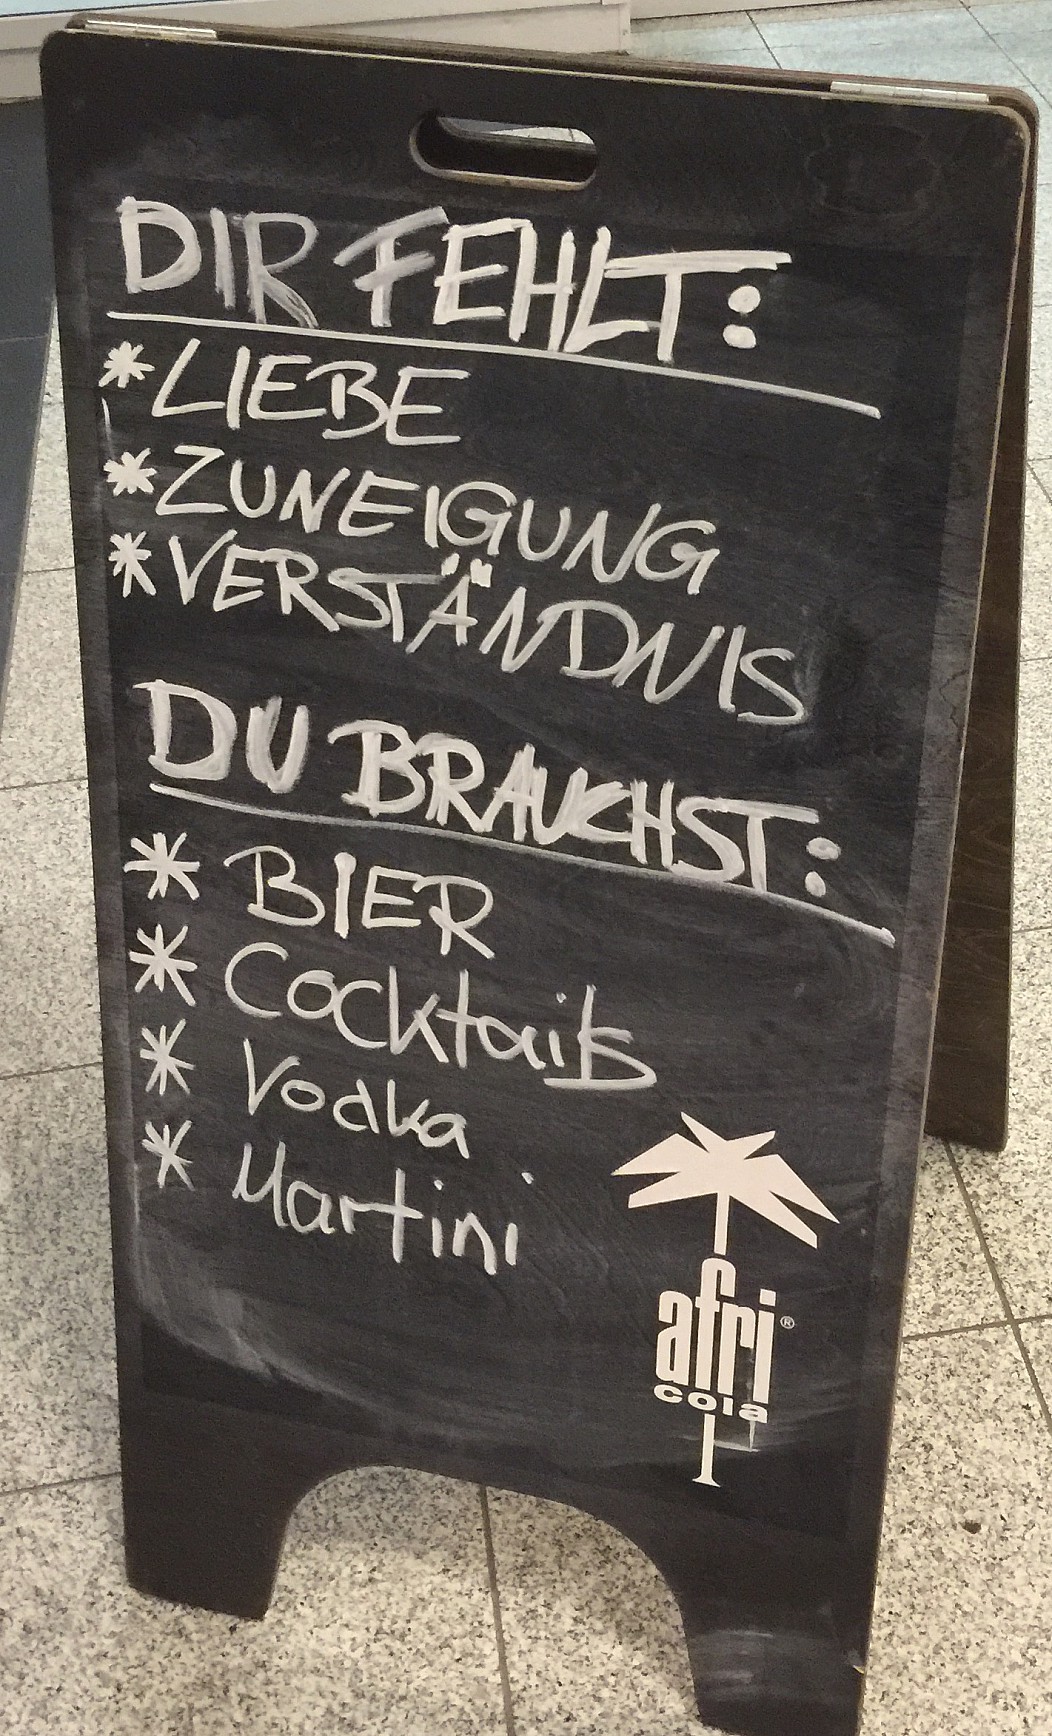 DIR FEHLT:
* LIEBE
* ZUNEIGUNG
* VERSTÄNDNIS
DU BRAUCHST:
* BIER
* Cocktails
* Vodka
* Martini
afri®
cola